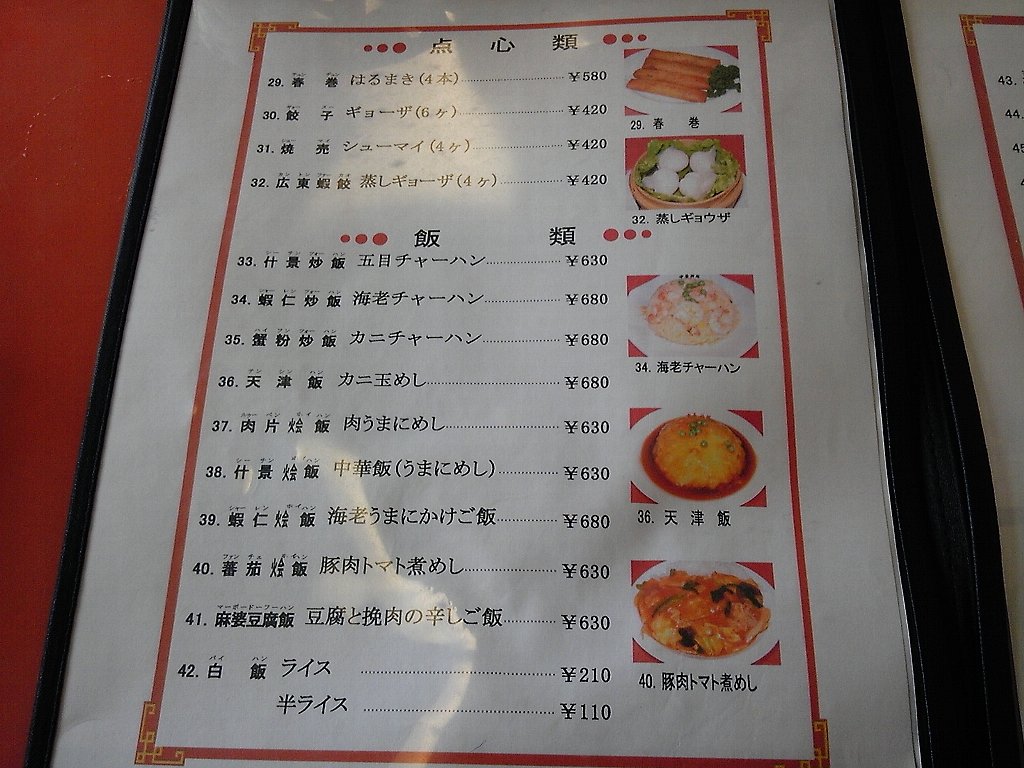 点 心 類
29. 春 巻 はるまき(4本) ¥580
30. 餃 子 ギョーザ(6ヶ) ¥420
31. 焼 売 シューマイ(4ヶ) ¥420
32. 広東蝦餃 蒸しギョーザ(4ヶ) ¥420
29. 春 巻
32. 蒸しギョウザ
飯 類
33. 什景炒飯 五目チャーハン ¥630
34. 蝦仁炒飯 海老チャーハン ¥680
35. 蟹粉炒飯 カニチャーハン ¥680
36. 天津飯 カニ玉めし ¥680
37. 肉片烩飯 肉うまにめし ¥630
38. 什景烩飯 中華飯(うまにめし) ¥630
39. 蝦仁烩飯 海老うまにかけご飯 ¥680
40. 蕃茄烩飯 豚肉トマト煮めし ¥630
マーボードーフーハン
41. 麻婆豆腐飯 豆腐と挽肉の辛しご飯 ¥630
パイ ハン
42. 白 飯 ライス ¥210
半ライス ¥110
34. 海老チャーハン
36. 天 津 飯
40. 豚肉トマト煮めし
43.
44.